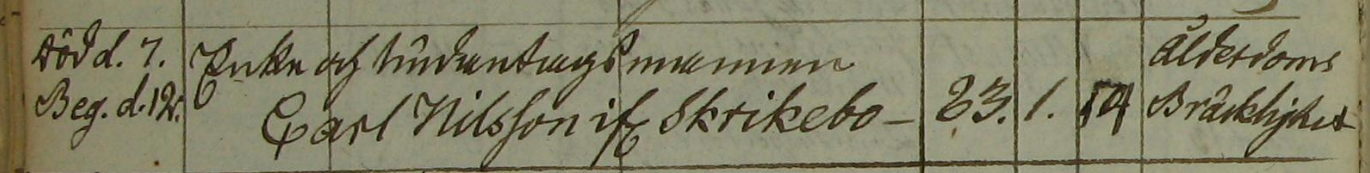 Död d. 7. Enke och Undantagsmannen Ålderdoms
Beg. d. 12. Carl Nilsson if Skrikebo – 83. 1. 14 Bräcklighet